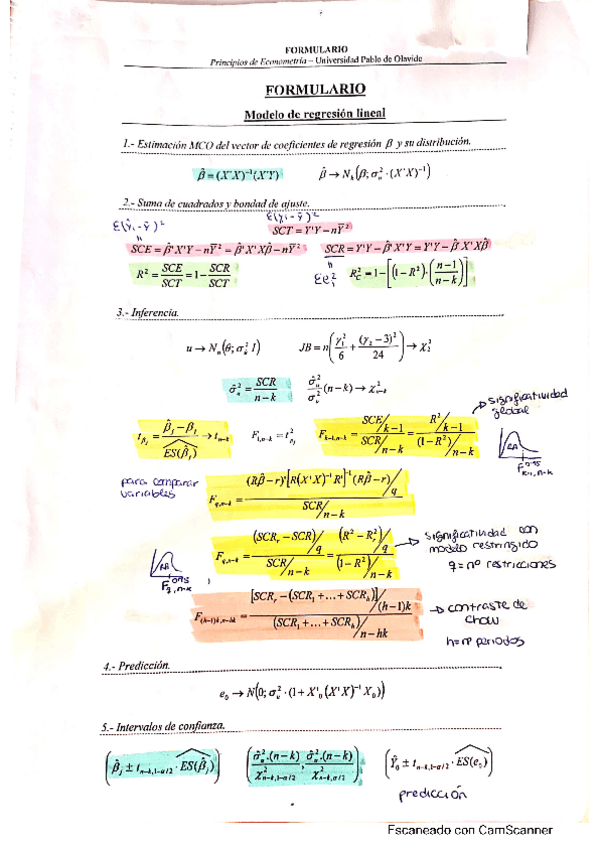 FORMULARIO
Principios de Econometría – Universidad Pablo de Olavide
FORMULARIO
Modelo de regresión lineal
1.- Estimación MCO del vector de coeficientes de regresión β y su distribución.
β̂ = (X'X)⁻¹(X'Y)   β̂ → N_k(β; σ_u² · (X'X)⁻¹)
2.- Suma de cuadrados y bondad de ajuste.
Σ(ŷᵢ - ȳ)²   Σ(yᵢ - ȳ)²
SCT = Y'Y − nȲ²
SCE = β̂'X'Y − nȲ² = β̂'X'Xβ̂ − nȲ²   SCR = Y'Y − β̂'X'Y = Y'Y − β̂'X'Xβ̂
R² = SCE/SCT = 1 − SCR/SCT   Σeᵢ²   R_C² = 1 − [(1 − R²)·((n−1)/(n−k))]
3.- Inferencia.
u → N_n(θ; σ_u² I)   JB = n(γ₁²/6 + (γ₂ − 3)²/24) → χ₂²
σ̂_u² = SCR/(n−k)   σ̂_u²/σ_u² (n−k) → χ²_{n−k}
significatividad global
t_{β̂j} = (β̂_j − β_j)/ES(β̂_j) → t_{n−k}   F_{1,n−k} = t²_{β̂j}   F_{k−1,n−k} = (SCE/k−1)/(SCR/n−k) = (R²/k−1)/((1−R²)/n−k)
RA
F^{0'95}_{k-1, n-k}
para comparar variables
F_{q,n−k} = ((Rβ̂−r)'[R(X'X)⁻¹R']⁻¹(Rβ̂−r)/q)/(SCR/n−k)
F_{q,n−k} = ((SCR_r − SCR)/q)/(SCR/n−k) = ((R² − R_r²)/q)/((1−R²)/n−k)
→ significatividad con modelo restringido
q = nº restricciones
RA
F^{0'95}_{q, n-k}
F_{(h−1)k,n−hk} = ([SCR_r − (SCR₁ + ... + SCR_h)]/(h−1)k)/((SCR₁ + ... + SCR_h)/n−hk)
→ contraste de chow
h = nº periodos
4.- Predicción.
e₀ → N(0; σ_u² · (1 + X'₀(X'X)⁻¹X₀))
5.- Intervalos de confianza.
(β̂_j ± t_{n−k,1−α/2} · ES(β̂_j))   (σ̂_u²·(n−k)/χ²_{n−k,1−α/2}, σ̂_u²·(n−k)/χ²_{n−k,α/2})   (Ŷ₀ ± t_{n−k,1−α/2} · ES(e₀))
predicción
Escaneado con CamScanner